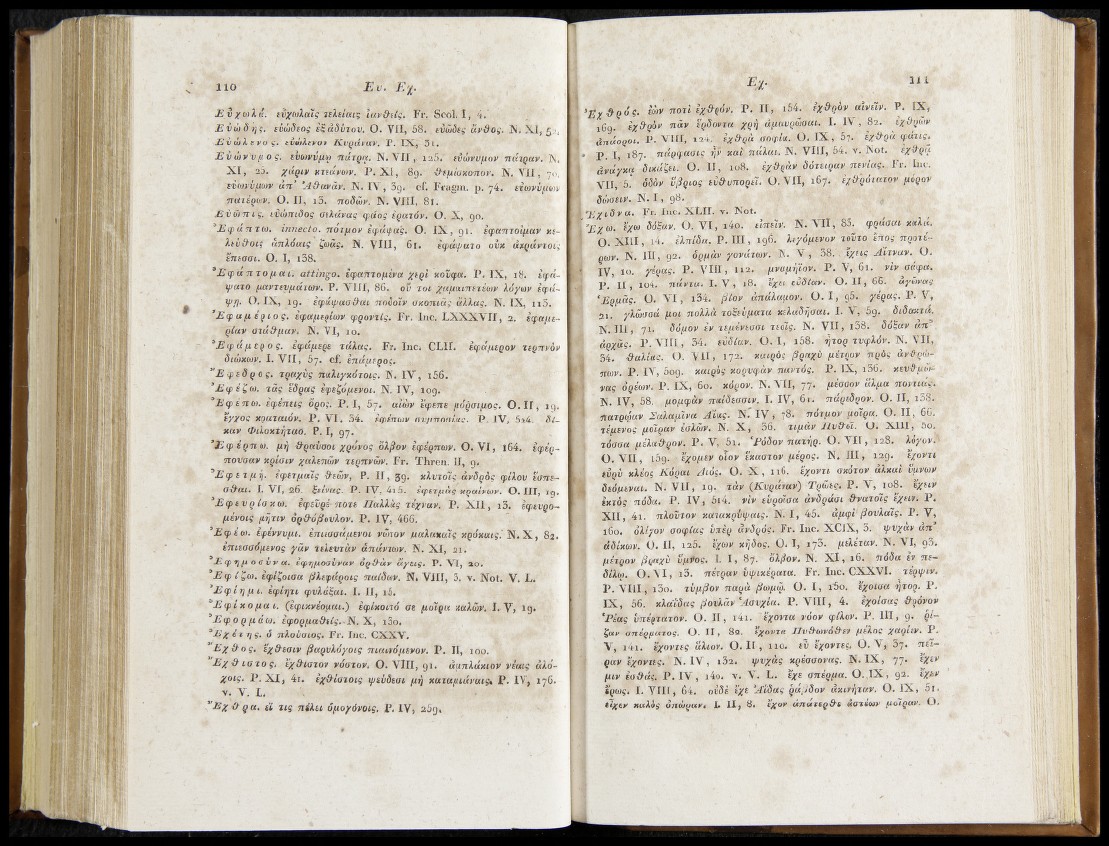 110 Ευ. Εχ.
Εὐχωλά. εὐχωλαῖς τελείαις ἰανθείς. Fr. Scol. I, 4.
Εὐώδης. εὐώδεος ἐξ ἀδύτου. O. VII, 58. εὐῶδες ἄνθος. N. XI,
Εὐώλενος. εὐώλενον Κυράναν. P. IX, 31.
Εὐώνυμος. εὐωνύμῳ πάτρᾳ. N. VII, 125. εὐώνυμον πάτραν. N.
XI, 25. χάριν κτεάνων. P. XI, 89. θεμίσκοπον. N. VII, 70.
εὐωνύμων ἀπ' Ἀθανᾶν. N. IV, 39. cf. Fragm. p. 74. εὐωνύμων
πατέρων. O. II, 13. ποδῶν. N. VIII, 81.
Εὐῶπις. εὐώπιδος σελάνας φάος ἐρατόν. O. X, 90.
Ἐφάπτω. innecto. πότμον ἐφάψας. O. IX, 91. ἐφαπτοίμαν κε-
λεύθοις ἁπλόαις ζωᾶς. N. VIII, 61. ἐφάψατο οὐκ ἀκράντοις
ἔπεσσι. O. I, 138.
Ἐφάπτομαι. attingo. ἐφαπτομένα χερὶ κούφᾳ. P. IX, 18. ἐφά-
ψατο μαντευμάτων. P. VIII, 86. οὔ τοι χαμαιπετέων λόγων ἐφά-
ψῃ. O. IX, 19. ἐφάψασθαι ποδοῖν σκοπιᾶς ἄλλας. N. IX, 113.
Ἐφαμέριος. ἐφαμερίων φροντίς. Fr. Inc. LXXXVII, 2. ἐφαμε-
ρίαν στάθμαν. N. VI, 10.
Ἐφάμερος. ἐφάμερε τάλας. Fr. Inc. CLII. ἐφάμερον τερπνὸν
διώκων. I. VII, 57. cf. ἐπάμερος.
Ἔφεδρος. τραχὺς παλιγκότοις. N. IV, 156.
Ἐφέζω. τᾶς ἕδρας ἐφεζόμενοι. N. IV, 109.
Ἐφέπω. ἐφέπεις ὄρος. P. I, 57. αἰὼν ἔφεπε μόρσιμος. O. II, 19.
ἔγχος κραταιόν. P. VI, 34. ἐφέπων συμποσίας. P. IV, 524. δί-
καν Φιλοκτήταο. P. I, 97.
Ἐφέρπω. μὴ θραύσοι χρόνος ὄλβον ἐφέρπων. O. VI, 164. ἐφέρ-
πουσαν κρίσιν χαλεπῶν τερπνῶν. Fr. Thren. II, 9.
Ἐφετμή. ἐφετμαῖς θεῶν. P. II, 39. κλυτοῖς ἀνδρὸς φίλου ἕσπε-
σθαι. I. VI, 26. ξείνας. P. IV, 415. ἐφετμὰς κραίνων. O. III, 19.
Ἐφευρίσκω. ἐφεῦρέ ποτε Παλλὰς τέχναν. P. XII, 13. ἐφευρο-
μένοις μῆτιν ὀρθόβουλον. P. IV, 466.
Ἐφέω. ἐφέννυμι. ἐπιεσσάμενοι νῶτον μαλακαῖς κρόκαις. N. X, 82.
ἐπιεσσόμενος γᾶν τελευτὰν ἁπάντων. N. XI, 21.
Ἐφημοσύνα. ἐφημοσύναν ὀρθὰν ἄγεις. P. VI, 20.
Ἐφίζω. ἐφίζοισα βλεφάροις παίδων. N. VIII, 3. v. Not. V. L.
Ἐφίημι. ἐφίητι φυλάξαι. I. II, 15.
Ἐφίκομαι. (ἐφικνέομαι.) ἐφίκοιτό σε μοῖρα καλῶν. I. V, 19.
Ἐφορμάω. ἐφορμαθείς. N. X, 130.
Ἐχέτης. ὁ πλούσιος. Fr. Inc. CXXV.
Ἔχθος. ἔχθεσιν βαρυλόγοις πιαινόμενον. P. II, 100.
Ἔχθιστος. ἔχθιστον νόστον. O. VIII, 91. ἀμπλάκιον νέαις ἀλό-
χοις. P. XI, 41. ἐχθίστοις ψεύδεσι μὴ καταμιάναις. P. IV, 176.
v. V. L.
Ἔχθρα. εἴ τις πέλει ὁμογόνοις. P. IV, 259.
Εχ. 111
Ἐχθρός. ἐὼν ποτὶ ἐχθρόν. P. II, 154. ἐχθρὸν αἰνεῖν. P. IX,
169. ἐχθρὸν πᾶν ἔρδοντα χρὴ ἀμαυρῶσαι. I. IV, 82. ἐχθρῶν
ἀπάοροι. P. VIII, 124. ἐχθρὰ σοφία. O. IX, 57. ἐχθρὰ φάτις.
P. I, 187. πάρφασις ἦν καὶ πάλαι. N. VIII, 54. v. Not. ἐχθρᾷ
ἀνάγκᾳ δικάζει. O. II, 108. ἐχθρὰν δότειραν πενίας. Fr. Inc.
VII, 5. ὁδὸν ὕβριος εὐθυπορεῖ. O. VII, 167. ἐχθρότατον μόρον
δώσειν. N. I, 98.
Ἔχιδνα. Fr. Inc. XLII. v. Not.
Ἔχω. ἔχω δόξαν. O. VI, 140. εἰπεῖν. N. VII, 83. φράσαι καλά.
O. XIII, 14. ἐλπίδα. P. III, 196. λεγόμενον τοῦτο ἔπος προτέ-
ρων. N. III, 92. ὁρμὰν γονάτων. N. V, 38. ἔχεις Αἴτναν. O.
IV, 10. γέρας. P. VIII, 112. μναμήϊον. P. V, 61. νιν σάφα.
P. II, 104. πάντα. I. V, 18. ἔχει εὐδίαν. O. II, 66. ἀγῶνας
Ἑρμᾶς. O. VI, 134. βίον ἀπάλαμον. O. I, 95. γέρας. P. V,
21. γλῶσσά μοι πολλὰ τοξεύματα κελαδῆσαι. I. V, 59. διδακτά.
N. III, 71. δόμον ἐν τεμένεσσι τεοῖς. N. VII, 138. δόξαν ἀπ'
ἀρχᾶς. P. VIII, 34. εὐδίαν. O. I, 158. ἦτορ τυφλόν. N. VII,
34. θαλίας. O. VII, 172. καιρὸς βραχὺ μέτρον πρὸς ἀνθρώ-
πων. P. IV, 509. καιρὸς κορυφὰν παντός. P. IX, 136. κευθμῶ-
νας ὀρέων. P. IX, 60. κόρον. N. VII, 77. μέσσον ἅλμα ποντιάς.
N. IV, 58. μομφὰν παίδεσσιν. I. IV, 61. πάρεδρον. O. II, 138.
πατρῴαν Σαλαμῖνα Αἴας. N. IV, 78. πότμον μοῖρα. O. II, 66.
τέμενος μοῖραν ἐσλῶν. N. X, 36. τιμὰν Πυθοῖ. O. XIII, 50.
τόσσα μέλαθρον. P. V, 51. Ῥόδον πατήρ. O. VII, 128. λόγον.
O. VII, 159. ἔχομεν οἷον ἕκαστον μέρος. N. III, 129. ἔχοντι
εὐρὺ κλέος Κόραι Διός. O. X, 116. ἔχοντι σκότον ἀλκαὶ ὕμνων
δεόμεναι. N. VII, 19. τὰν (Κυράναν) Τρῶες. P. V, 108. ἔχειν
ἐκτὸς πόδα. P. IV, 514. νὶν εὑροῖσα ἀνδράσι θνατοῖς ἔχειν. P.
XII, 41. πλοῦτον κατακρύψαις. N. I, 45. ἀμφὶ βουλαῖς. P. V,
160. ὀλίγον σοφίας ὑπὲρ ἀνδρός. Fr. Inc. XCIX, 3. ψυχὰν ἀπ'
ἀδίκων. O. II, 125. ἔχων κῆδος. O. I, 173. μελέταν. N. VI, 93.
μέτρον βραχὺ ὕμνος. I. I, 87. ὄλβον. N. XI, 16. πόδα ἐν πε-
δίλῳ. O. VI, 13. πέτραν ὑψικέρατα. Fr. Inc. CXXVI. τέρψιν.
P. VIII, 130. τύμβον παρὰ βωμῷ. O. I, 150. ἔχοισα ἦτορ. P.
IX, 56. κλαΐδας βουλᾶν Ἁσυχία. P. VIII, 4. ἐχοίσας θρόνον
Ῥέας ὑπέρτατον. O. II, 141. ἔχοντα νόον φίλων. P. III, 9. ῥί-
ζαν σπέρματος. O. II, 82. ἔχοντα Πυθωνόθεν μέλος χαρίεν. P.
V, 141. ἔχοντες ἅλιον. O. II, 110. εὖ ἔχοντες. O. V, 37. πεῖ-
ραν ἔχοντες. N. IV, 132. ψυχὰς κρέσσονας. N. IX, 77. ἔχεν
μιν ἐσθάς. P. IV, 140. v. V. L. ἔχε σπέρμα. O. IX, 92. ἔχεν
ἔρως. I. VIII, 64. οὐδὲ ἔχε Ἀΐδας ῥάβδον ἀκινήταν. O. IX, 51.
εἶχεν καλὸς ὀπώραν. I. II, 8. ἔχον ἀπάτερθε ἀστέων μοῖραν. O.